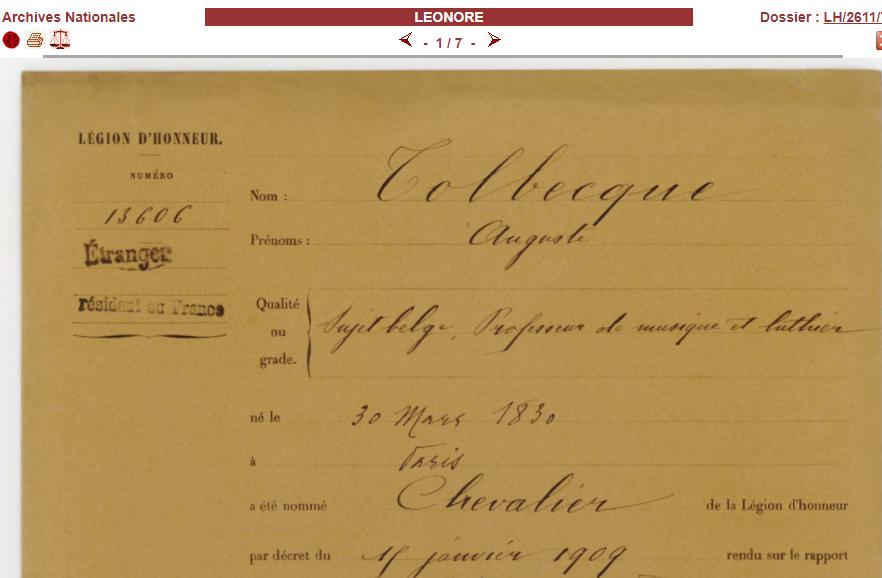 Archives Nationales
LEONORE
Dossier : LH/2611/
- 1 / 7 -
LÉGION D'HONNEUR.
NUMÉRO
13606
Étranger
résidant en France
Nom : Tolbecque
Prénoms : Auguste
Qualité ou grade. Sujet belge, Professeur de musique et luthier
né le 30 Mars 1830
à Paris
a été nommé Chevalier de la Légion d'honneur
par décret du janvier 1909 rendu sur le rapport